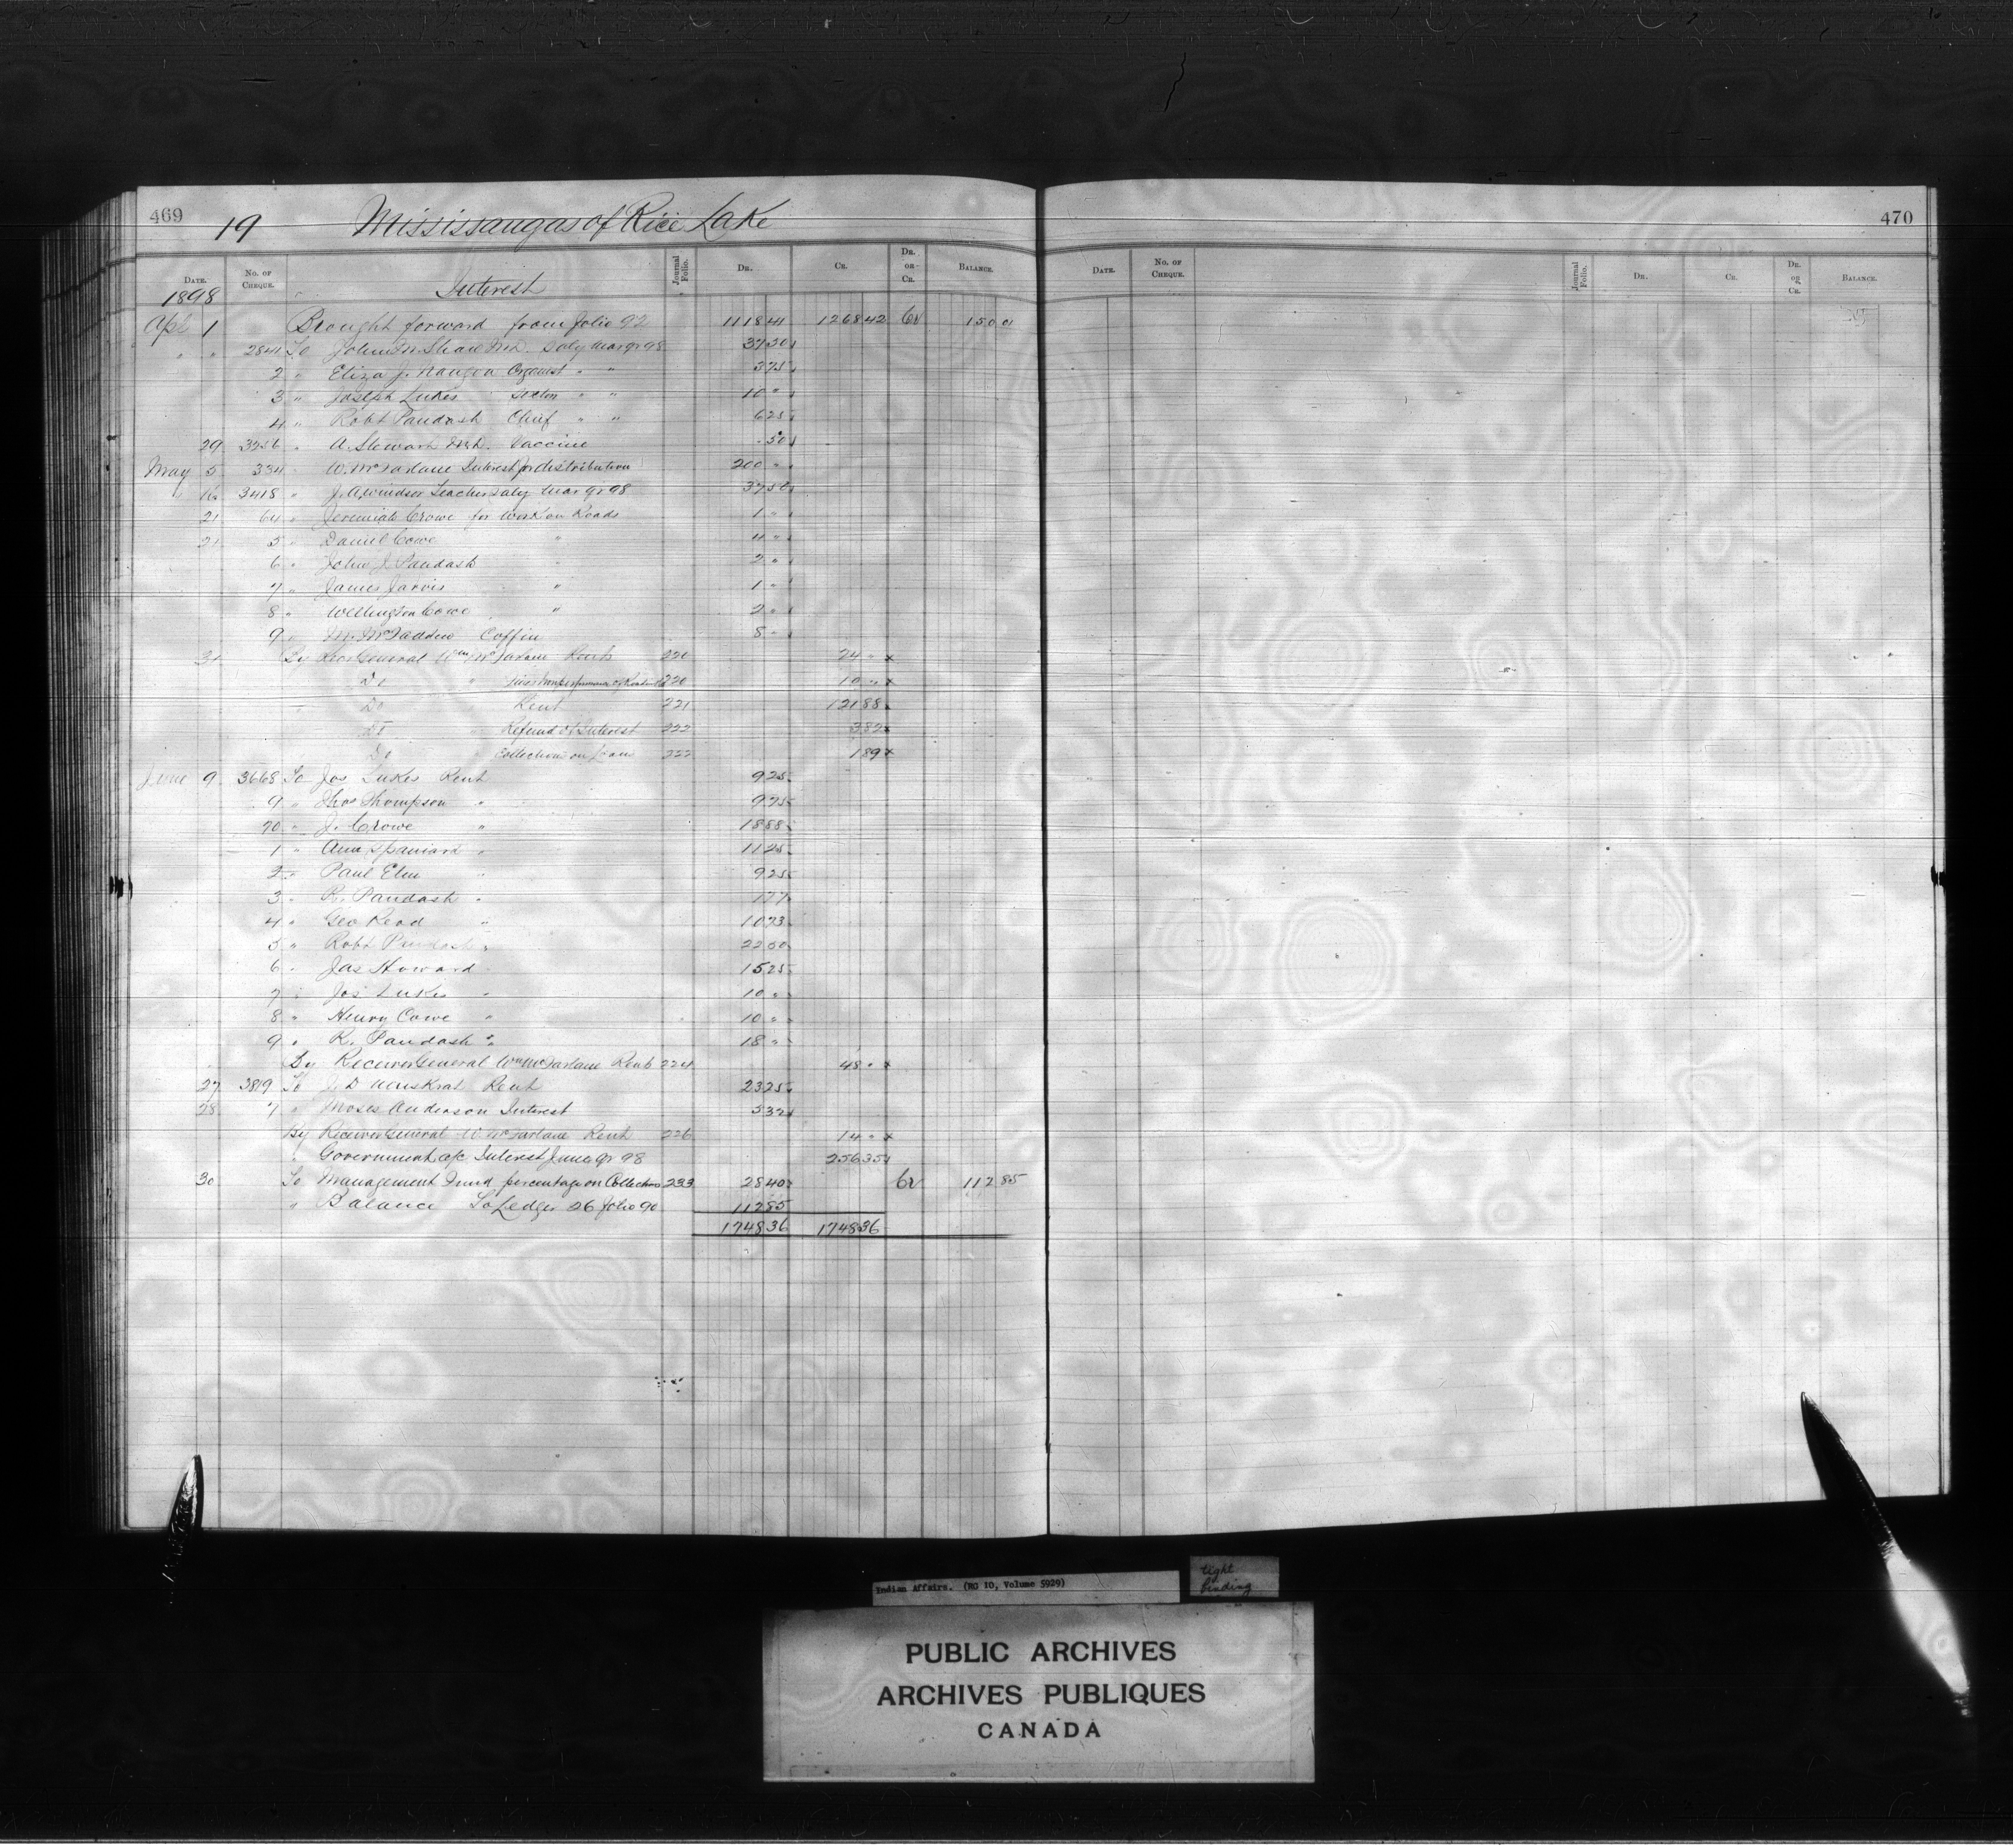 469
19 Mississaugas of Rice Lake
DATE. No. OF CHEQUE. Interest Journal Folio. DR. CR. DR. OR CR. BALANCE.
1898
Apl 1 Brought forward from Folio 92 1118 41 1268 42 Cr 150 01
" " 2841 To John M. Shaw M.D. Saly Mar qr 98 37 50
2 " Eliza J. Organist " " 3 75
3 " Joseph Lukes Sexton " " 10 "
4 " Robt Paudash Chief " " 6 25
29 3256 " A. Stewart M.D. Vaccine 50
May 5 334 " W. McFarlane Interest for distribution 200 "
16 3418 " J. A. Windsor Teacher Saly Mar qr 98 37 50
21 64 " Jeremiah Crowe for Work on Roads 1 "
21 5 " Daniel Cowe " 4 "
6 " John J. Paudash " 2 "
7 " James Jarvis " 1 "
8 " Wellington Cowe " 2 "
9 " M. McFadden Coffin 8 "
31 By Recr General Wm McFarlane Rent 220 24 "
Do " 220 10 "
" Do " Rent 221 121 88
Do " Refund of Interest 222 3 82
Do " Collections on Loans 222 1 89
June 9 3668 To Jos Lukes Rent 9 25
9 " Thos Thompson " 9 75
70 " J. Crowe " 18 88
1 " Ann Spaniard " 11 25
2 " Paul Elm " 9 25
3 " R. Paudash " 1 77
4 " Geo Read " 10 73
5 " Robt Paudash " 22 50
6 " Jas Howard 15 25
7 " Jos Lukes " 10 "
8 " Henry Cowe " 10 "
9 " R. Paudash " 18 "
By Receiver General Wm McFarlane Rent 224 48 "
27 3819 To J. D. Muskrat Rent 23 25
28 7 " Moses Anderson Interest 5 32
By Receiver General W. McFarlane Rent 226 14 "
" Government a/c Interest June qr 98 256 35
30 To Management Fund percentage on Collections 233 28 40 Cr 112 85
" Balance To Ledger 26 Folio 90 112 85
1748 36 1748 36
470
DATE. No. OF CHEQUE. Journal Folio. DR. CR. DR. OR CR. BALANCE.
Indian Affairs. (RG 10, Volume 5929)
tight binding
PUBLIC ARCHIVES
ARCHIVES PUBLIQUES
CANADA